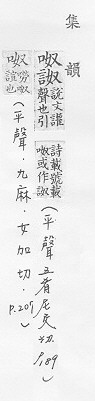 集韻
呶詉說文讙聲也引詩載號載呶或作詉(平聲五肴尼交切 P.189)
呶詉嘮呶諠也(平聲.九麻.女加切.P.209)